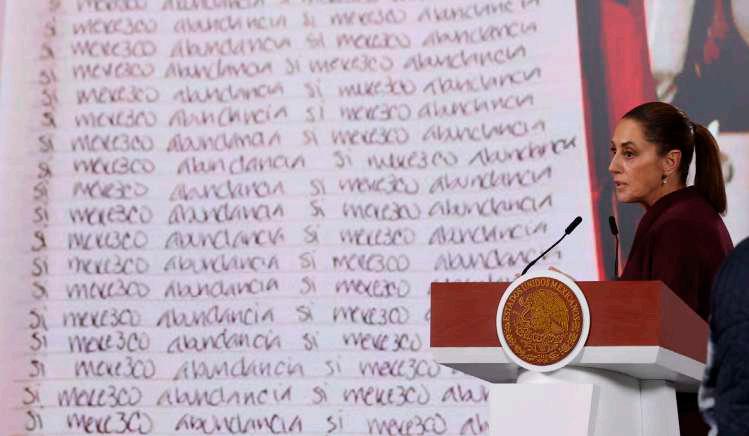 si merezco abundancia si merezco abundancia
si merezco abundancia si merezco abundancia
si merezco abundancia si merezco abundancia
si merezco abundancia si merezco abundancia
si merezco abundancia si merezco abundancia
si merezco abundancia si merezco abundancia
si merezco abundancia si merezco abundancia
si merezco abundancia si merezco abundancia
si merezco abundancia si merezco abundancia
si merezco abundancia si merezco abundancia
si merezco abundancia si merezco abundancia
si merezco abundancia si merezco
si merezco abundancia si merezco
si merezco abundancia si merezco
si merezco abundancia si merezco
si merezco abundancia si merezco
si merezco abundancia si merezco
ESTADOS UNIDOS MEXICANOS